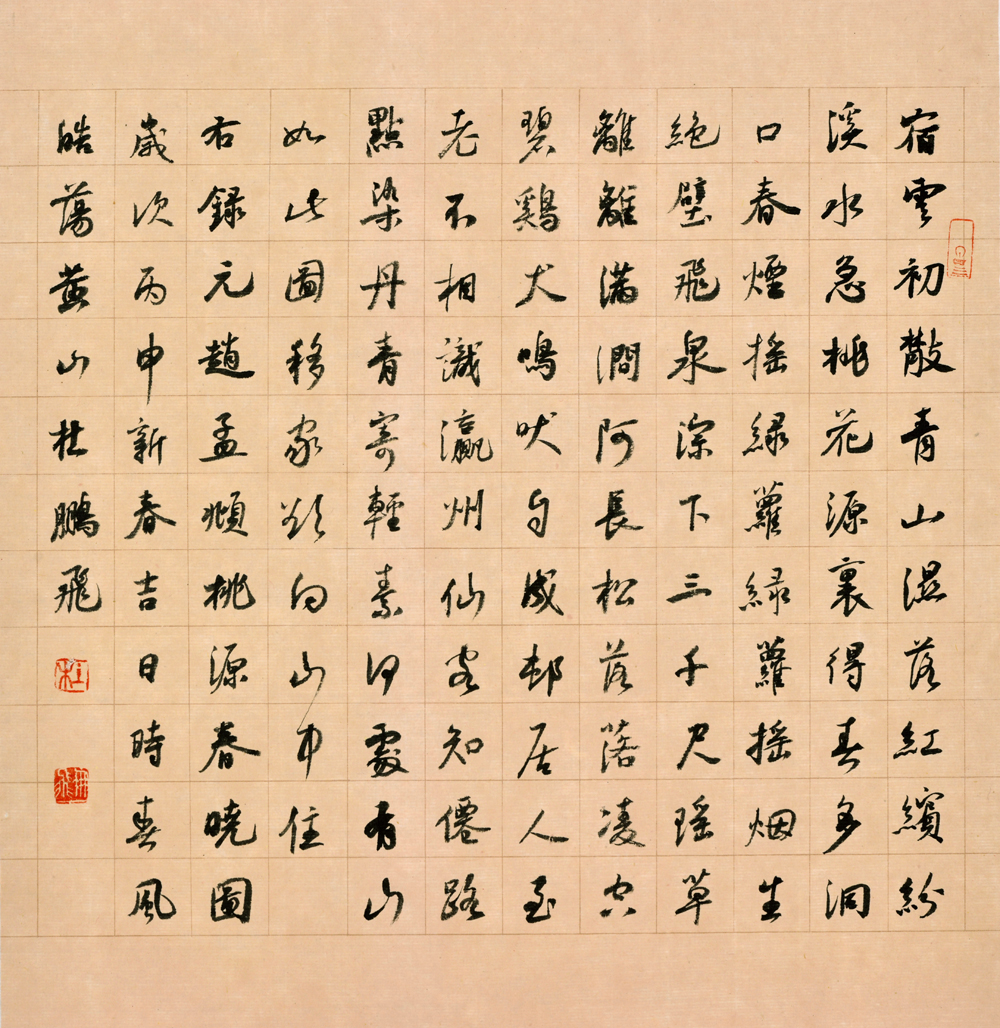 宿雲初散青山湿落紅繽紛
溪水急桃花源裏得春多洞
口春煙搖緑蘿緑蘿搖烟生
絕壁飛泉深下三千尺瑤草
離離滿澗阿長松落落凌空
碧鷄犬鳴吠自成邨居人至
老不相識瀛州仙客知僊路
點染丹青寄輕素何處有山
如此圖移家欲向山中住
右録元趙孟頫桃源春曉圖
歲次丙申新春吉日時春風
皓蕩黃山杜鵬飛